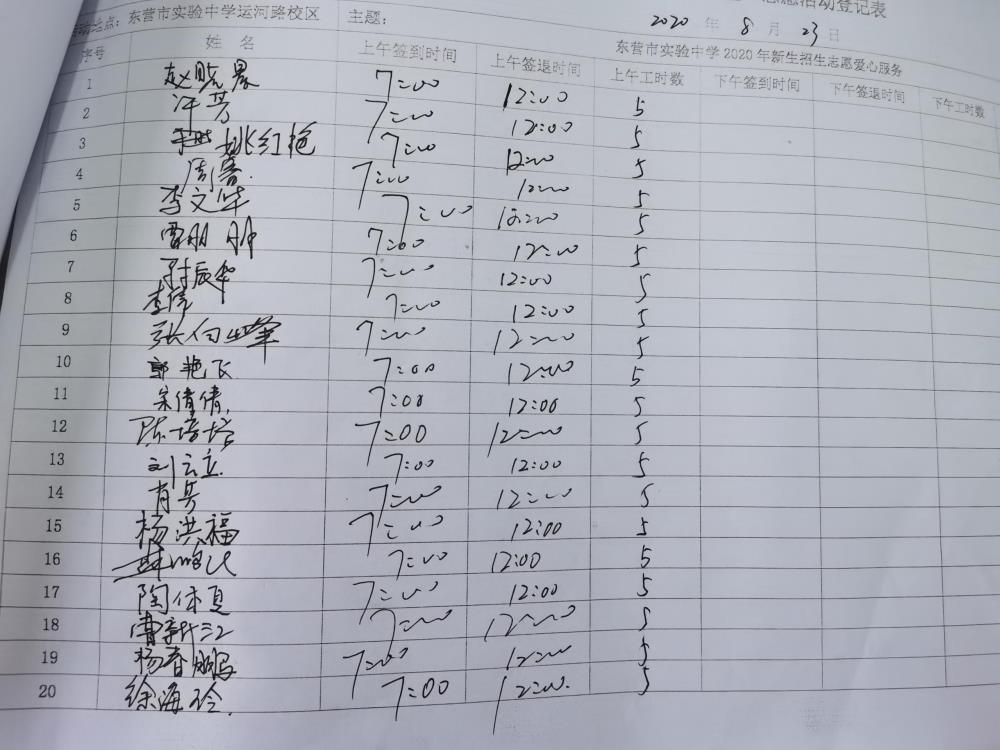 活动登记表
活动地点：东营市实验中学运河路校区 主题： 2020 年 8 月 23 日
序号 姓 名 上午签到时间 上午签退时间 东营市实验中学2020年新生招生志愿爱心服务
上午工时数 下午签到时间 下午签退时间 下午工时数
1 赵晓晨 7:00 12:00 5
2 许芳 7:00 12:00 5
3 姚红艳 7:00 12:00 5
4 周蓉 7:00 12:00 5
5 李文华 7:00 12:00 5
6 雷朋朋 7:00 12:00 5
7 尉振华 7:00 12:00 5
8 李倩 7:00 12:00 5
9 张向峰 7:00 12:00 5
10 郭艳飞 7:00 12:00 5
11 宋倩倩 7:00 12:00 5
12 陈培培 7:00 12:00 5
13 刘云立 7:00 12:00 5
14 肖芳 7:00 12:00 5
15 杨洪福 7:00 12:00 5
16 7:00 12:00 5
17 陶体夏 7:00 12:00 5
18 曹新江 7:00 12:00 5
19 杨春鹏 7:00 12:00 5
20 徐海玲 7:00 12:00 5